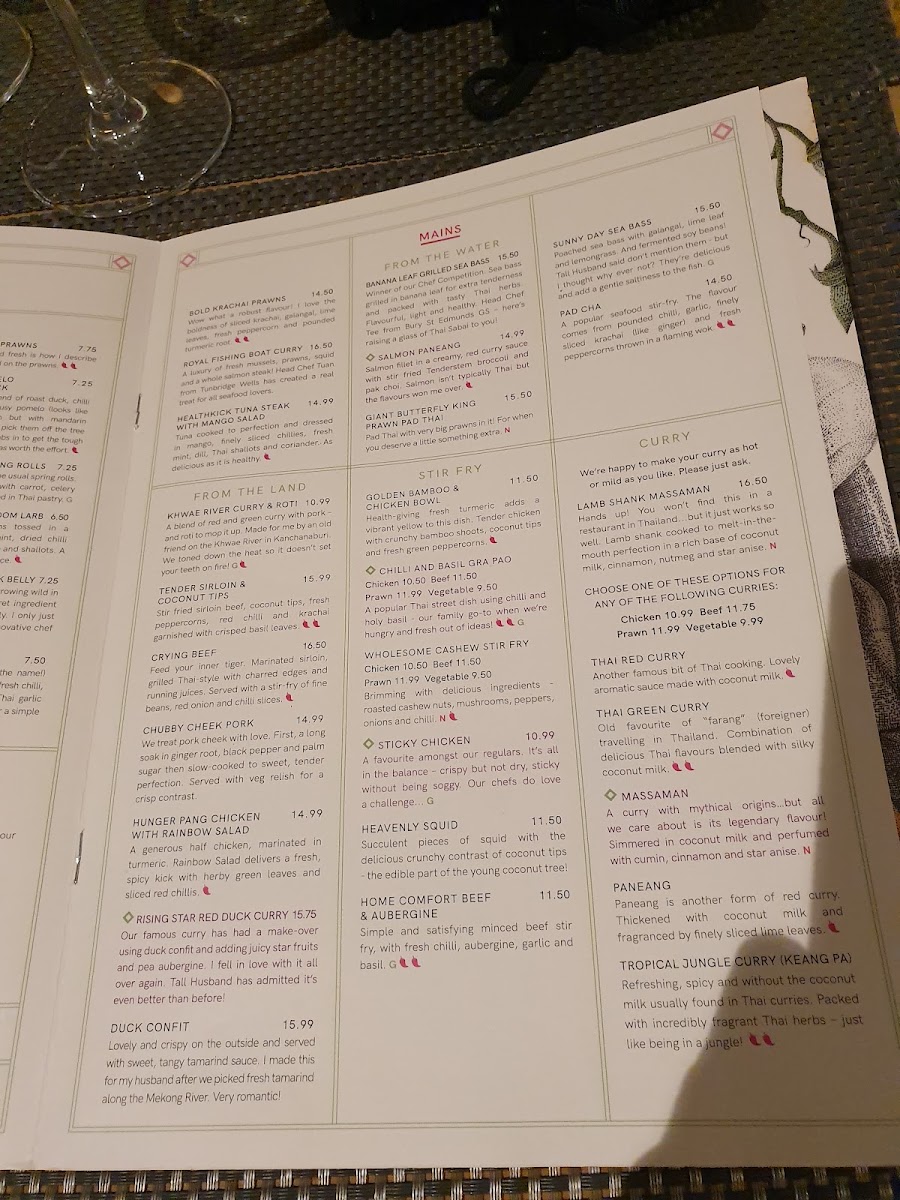 PRAWNS 7.75
d fresh is how I describe
d on the prawns.
ELO
K 7.25
end of roast duck, chilli
usy pomelo (looks like
but with mandarin
pick them off the tree
bs in to get the tough
as worth the effort.
NG ROLLS 7.25
e usual spring rolls.
with carrot, celery
d in Thai pastry. G
OOM LARB 6.50
ms tossed in a
mint, dried chilli
and shallots. A
ce.
K BELLY 7.25
rowing wild in
et ingredient
ly. I only just
novative chef
7.50
the name!)
fresh chilli,
Thai garlic
r a simple
our
MAINS
BOLD KRACHAI PRAWNS 14.50
Wow what a robust flavour! I love the
boldness of sliced krachai, galangal, lime
leaves, fresh peppercorn and pounded
turmeric root.
ROYAL FISHING BOAT CURRY 16.50
A luxury of fresh mussels, prawns, squid
and a whole salmon steak! Head Chef Tuan
from Tunbridge Wells has created a real
treat for all seafood lovers.
HEALTHKICK TUNA STEAK
WITH MANGO SALAD 14.99
Tuna cooked to perfection and dressed
in mango, finely sliced chillies, fresh
mint, dill, Thai shallots and coriander. As
delicious as it is healthy.
FROM THE WATER
BANANA LEAF GRILLED SEA BASS 15.50
Winner of our Chef Competition. Sea bass
grilled in banana leaf for extra tenderness
and packed with tasty Thai herbs.
Flavourful, light and healthy. Head Chef
Tee from Bury St Edmunds GS – here's
raising a glass of Thai Sabai to you!
SALMON PANEANG 14.99
Salmon fillet in a creamy, red curry sauce
with stir fried Tenderstem broccoli and
pak choi. Salmon isn't typically Thai but
the flavours won me over.
GIANT BUTTERFLY KING
PRAWN PAD THAI 15.50
Pad Thai with very big prawns in it! For when
you deserve a little something extra. N
SUNNY DAY SEA BASS 15.50
Poached sea bass with galangal, lime leaf
and lemongrass. And fermented soy beans!
Tall Husband said don't mention them - but
I thought why ever not? They're delicious
and add a gentle saltiness to the fish. G
PAD CHA 14.50
A popular seafood stir-fry. The flavour
comes from pounded chilli, garlic, finely
sliced krachai (like ginger) and fresh
peppercorns thrown in a flaming wok.
FROM THE LAND
KHWAE RIVER CURRY & ROTI 10.99
A blend of red and green curry with pork -
and roti to mop it up. Made for me by an old
friend on the Khwae River in Kanchanaburi.
We toned down the heat so it doesn't set
your teeth on fire! G
TENDER SIRLOIN &
COCONUT TIPS 15.99
Stir fried sirloin beef, coconut tips, fresh
peppercorns, red chilli and krachai
garnished with crisped basil leaves.
CRYING BEEF 16.50
Feed your inner tiger. Marinated sirloin,
grilled Thai-style with charred edges and
running juices. Served with a stir-fry of fine
beans, red onion and chilli slices.
CHUBBY CHEEK PORK 14.99
We treat pork cheek with love. First, a long
soak in ginger root, black pepper and palm
sugar then slow-cooked to sweet, tender
perfection. Served with veg relish for a
crisp contrast.
HUNGER PANG CHICKEN
WITH RAINBOW SALAD 14.99
A generous half chicken, marinated in
turmeric. Rainbow Salad delivers a fresh,
spicy kick with herby green leaves and
sliced red chillis.
RISING STAR RED DUCK CURRY 15.75
Our famous curry has had a make-over
using duck confit and adding juicy star fruits
and pea aubergine. I fell in love with it all
over again. Tall Husband has admitted it's
even better than before!
DUCK CONFIT 15.99
Lovely and crispy on the outside and served
with sweet, tangy tamarind sauce. I made this
for my husband after we picked fresh tamarind
along the Mekong River. Very romantic!
STIR FRY
GOLDEN BAMBOO &
CHICKEN BOWL 11.50
Health-giving fresh turmeric adds a
vibrant yellow to this dish. Tender chicken
with crunchy bamboo shoots, coconut tips
and fresh green peppercorns.
CHILLI AND BASIL GRA PAO
Chicken 10.50 Beef 11.50
Prawn 11.99 Vegetable 9.50
A popular Thai street dish using chilli and
holy basil - our family go-to when we're
hungry and fresh out of ideas! G
WHOLESOME CASHEW STIR FRY
Chicken 10.50 Beef 11.50
Prawn 11.99 Vegetable 9.50
Brimming with delicious ingredients -
roasted cashew nuts, mushrooms, peppers,
onions and chilli. N
STICKY CHICKEN 10.99
A favourite amongst our regulars. It's all
in the balance – crispy but not dry, sticky
without being soggy. Our chefs do love
a challenge... G
HEAVENLY SQUID 11.50
Succulent pieces of squid with the
delicious crunchy contrast of coconut tips
- the edible part of the young coconut tree!
HOME COMFORT BEEF
& AUBERGINE 11.50
Simple and satisfying minced beef stir
fry, with fresh chilli, aubergine, garlic and
basil. G
CURRY
We're happy to make your curry as hot
or mild as you like. Please just ask.
LAMB SHANK MASSAMAN 16.50
Hands up! You won't find this in a
restaurant in Thailand...but it just works so
well. Lamb shank cooked to melt-in-the-
mouth perfection in a rich base of coconut
milk, cinnamon, nutmeg and star anise. N
CHOOSE ONE OF THESE OPTIONS FOR
ANY OF THE FOLLOWING CURRIES:
Chicken 10.99 Beef 11.75
Prawn 11.99 Vegetable 9.99
THAI RED CURRY
Another famous bit of Thai cooking. Lovely
aromatic sauce made with coconut milk.
THAI GREEN CURRY
Old favourite of "farang" (foreigner)
travelling in Thailand. Combination of
delicious Thai flavours blended with silky
coconut milk.
MASSAMAN
A curry with mythical origins...but all
we care about is its legendary flavour!
Simmered in coconut milk and perfumed
with cumin, cinnamon and star anise. N
PANEANG
Paneang is another form of red curry.
Thickened with coconut milk and
fragranced by finely sliced lime leaves.
TROPICAL JUNGLE CURRY (KEANG PA)
Refreshing, spicy and without the coconut
milk usually found in Thai curries. Packed
with incredibly fragrant Thai herbs – just
like being in a jungle!